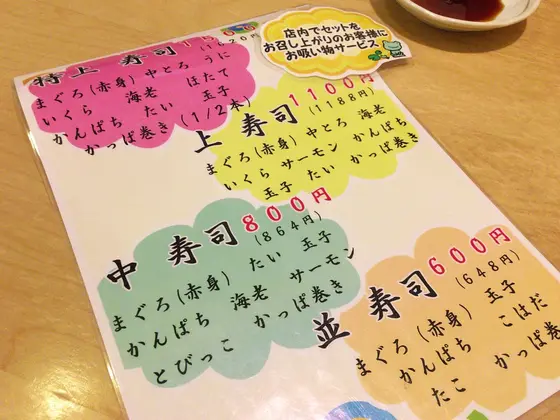 店内でセットを
お召し上がりのお客様に
お吸い物サービス
特上 寿司
まぐろ(赤身) 中とろ うに
いくら 海老 ほたて
かんぱち たい 玉子
かっぱ巻き(1/2本)
上 寿司 1100円
(1188円)
まぐろ(赤身) 中とろ 海老
いくら サーモン かんぱち
玉子 たい かっぱ巻き
中 寿司 800円
(864円)
まぐろ(赤身) たい 玉子
かんぱち 海老 サーモン
とびっこ かっぱ巻き
並 寿司 600円
(648円)
まぐろ(赤身) 玉子
かんぱち こはだ
たこ かっぱ巻き